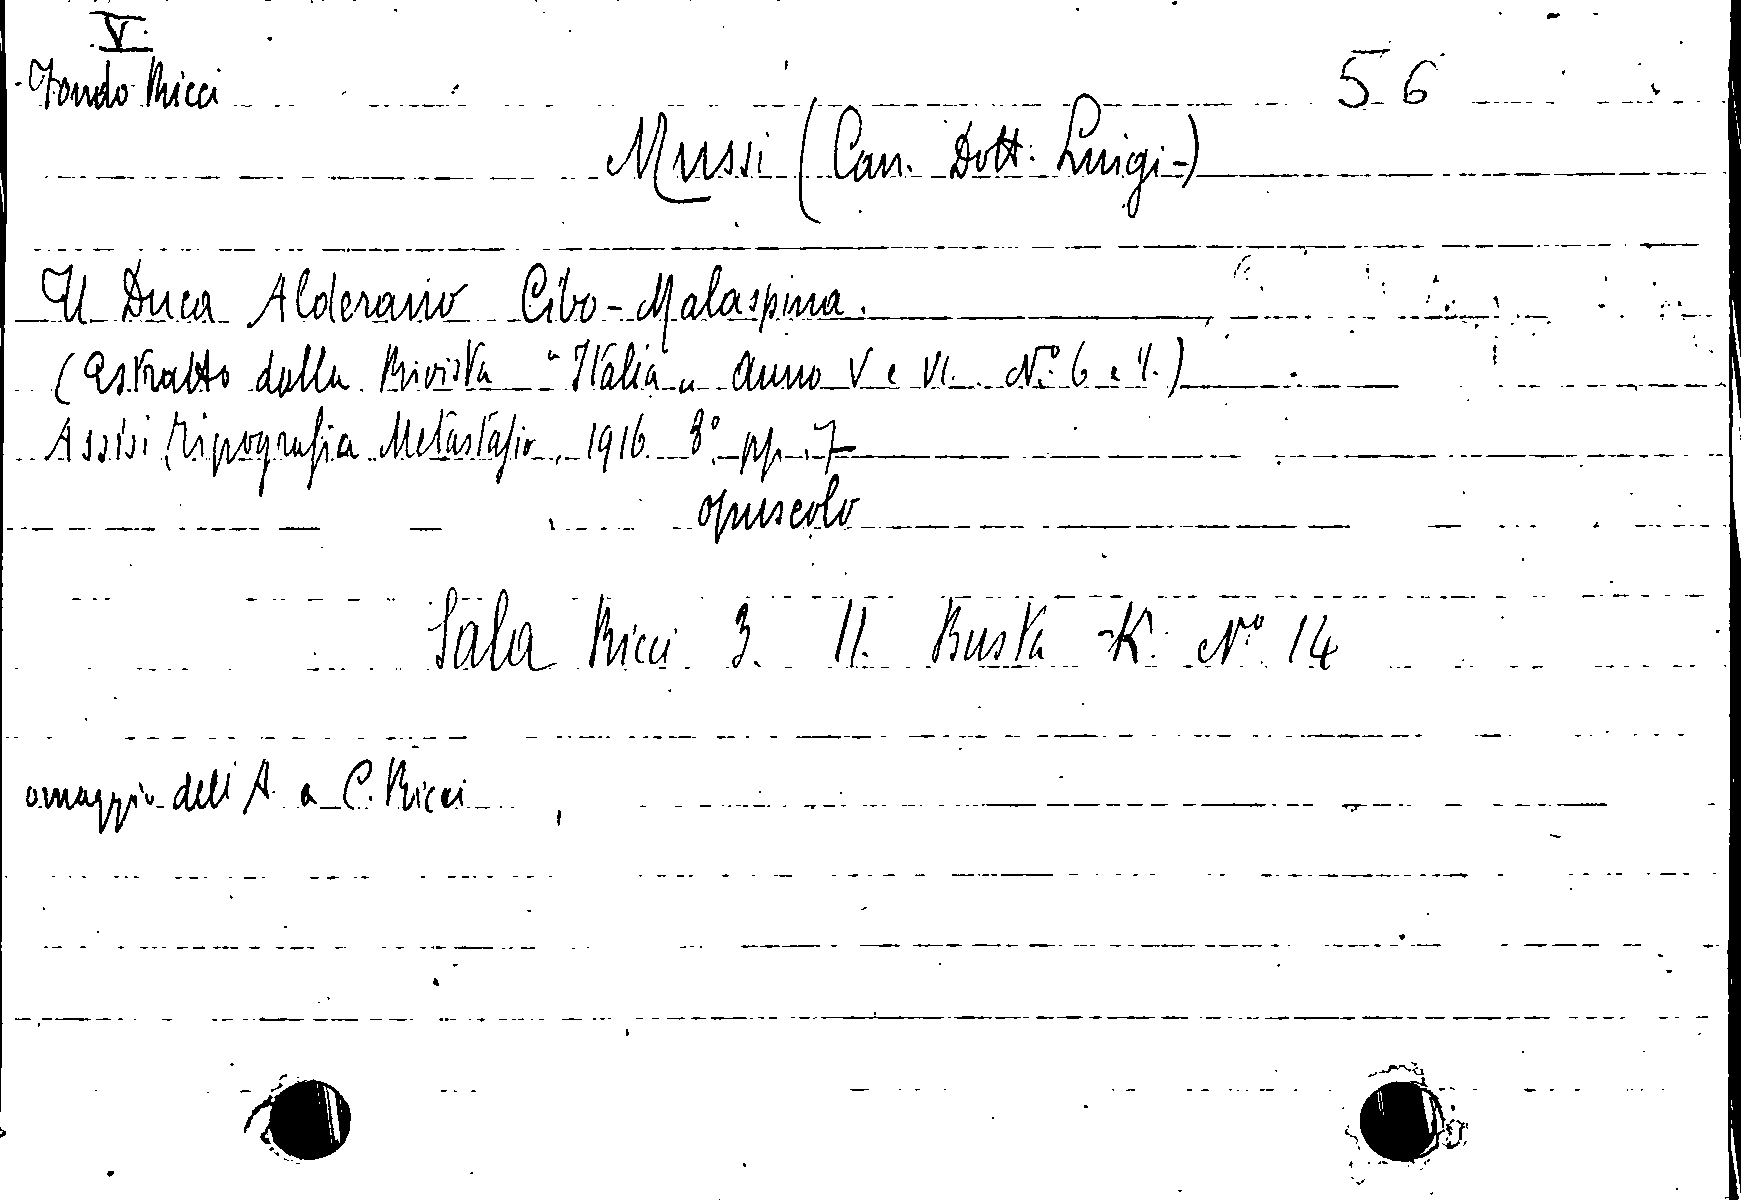 V.
Fondo Ricci
56
Mussi (Can. Dott. Luigi-)
Il Duca Alderano Cibo-Malaspina.
(Estratto dalla Rivista "Italia" anno V e VI. N.º 6 e 1.)
Assisi, Tipografia Metastasio, 1916. 8º. pp. 7
opuscolo
Sala Ricci 3. 11. Busta K. Nº 14
omaggio dell'A. a C. Ricci